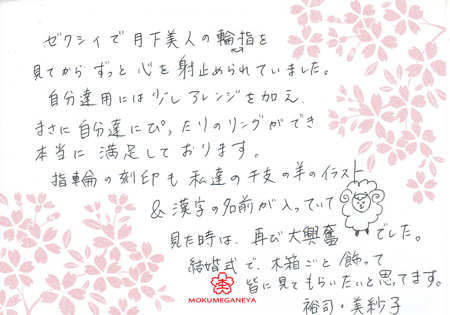 ゼクシィで月下美人の指輪を
見てからずっと心を射止められていました。
自分達用には少しアレンジを加え、
まさに自分達にぴったりのリングができ
本当に満足しております。
指輪の刻印も私達の干支の羊のイラスト
&漢字の名前が入っていて
見た時は、再び大興奮でした。
結婚式で、木箱ごと飾って
皆に見てもらいたいと思てます。
裕司・美紗子
MOKUMEGANEYA